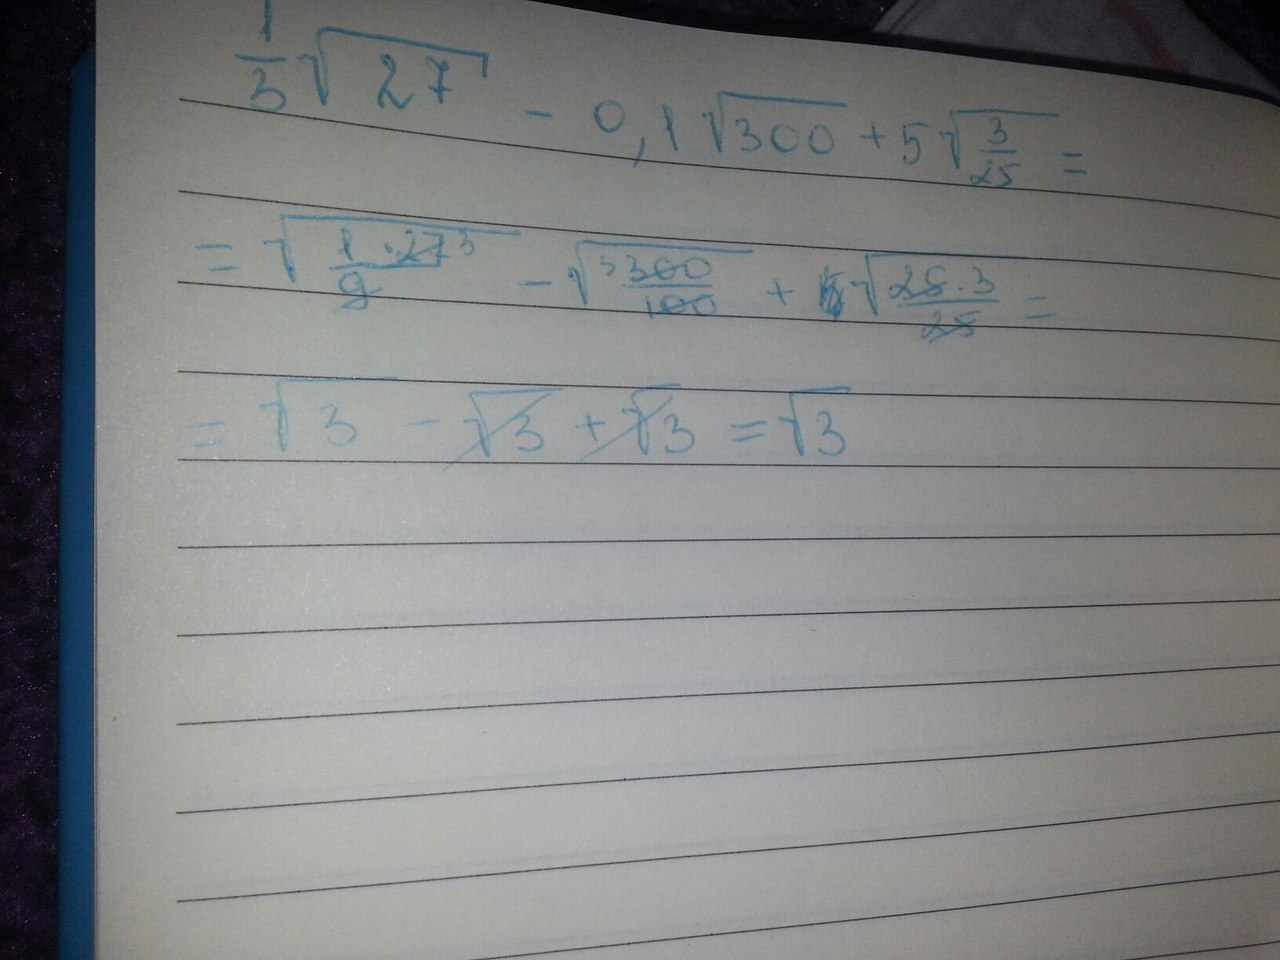 1/3 √27 - 0,1 √300 + 5 √(3/25) =
= √(1 · 27 3/9) - √(3 300/100) + √(25 · 3/25) =
= √3 - √3 + √3 = √3